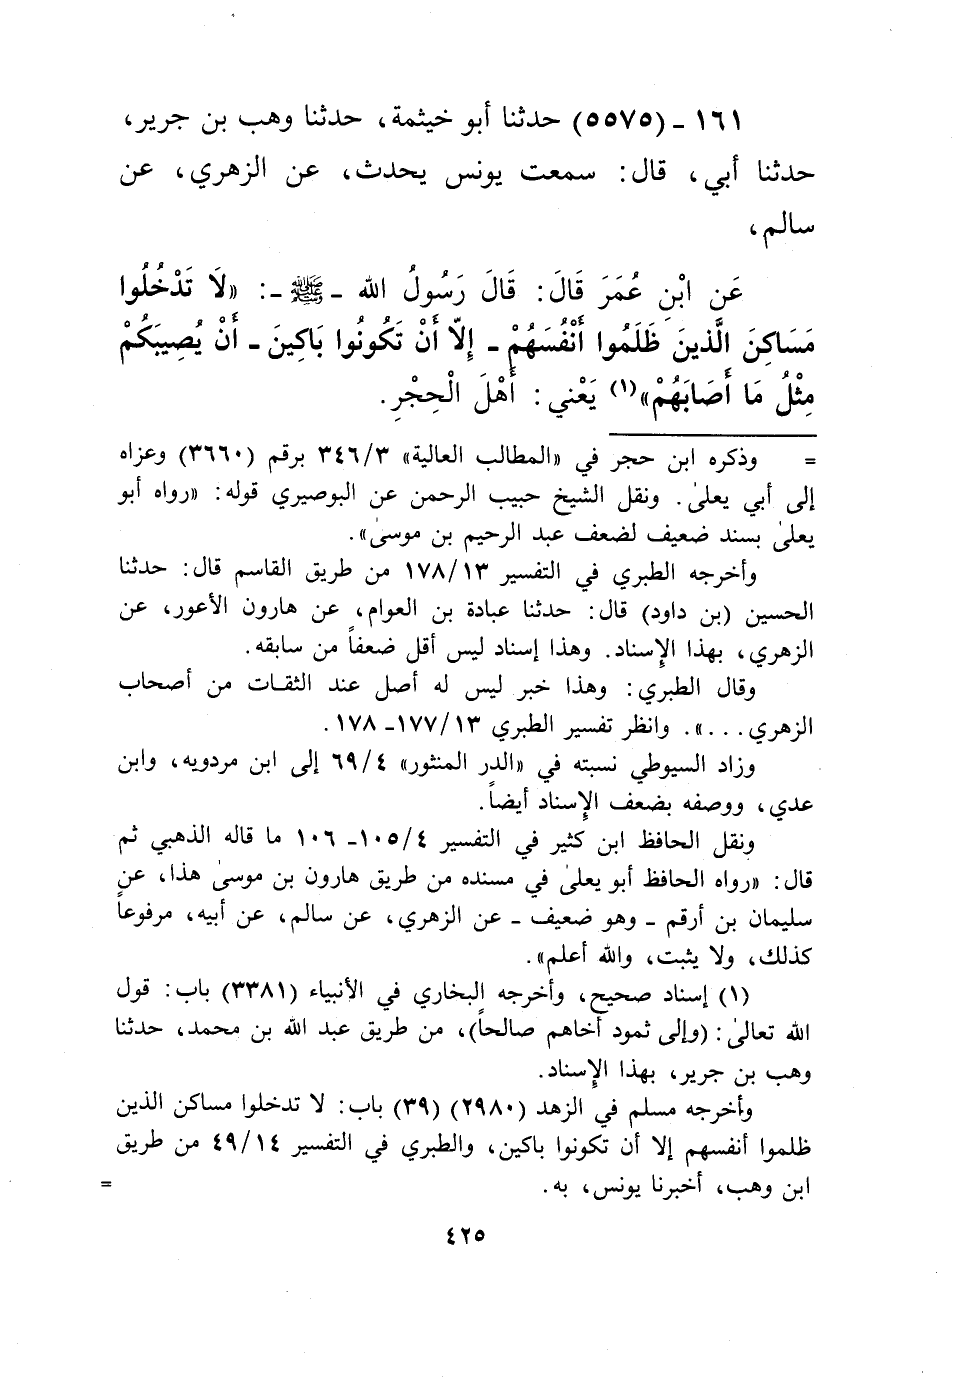 ١٦١ ـ (٥٥٧٥) حدثنا أبو خيثمة، حدثنا وهب بن جرير،
حدثنا أبي، قال: سمعت يونس يحدث، عن الزهري، عن
سالم،
عَن ابْنِ عُمَرَ قَالَ: قَالَ رَسُولُ الله ـ ﷺ ـ: «لَا تَدْخُلُوا
مَسَاكِنَ الَّذينَ ظَلَمُوا أَنْفُسَهُمْ ـ إِلّا أَنْ تَكُونُوا بَاكِينَ ـ أَنْ يُصِيبَكُمْ
مِثْلُ مَا أَصَابَهُمْ»(١) يَعْني: أَهْلَ الْحِجْرِ.
= وذكره ابن حجر في «المطالب العالية» ٣٤٦/٣ برقم (٣٦٦٠) وعزاه
إلى أبي يعلىٰ. ونقل الشيخ حبيب الرحمن عن البوصيري قوله: «رواه أبو
يعلىٰ بسند ضعيف لضعف عبد الرحيم بن موسىٰ».
وأخرجه الطبري في التفسير ١٧٨/١٣ من طريق القاسم قال: حدثنا
الحسين (بن داود) قال: حدثنا عبادة بن العوام، عن هارون الأعور، عن
الزهري، بهذا الإسناد. وهذا إسناد ليس أقل ضعفاً من سابقه.
وقال الطبري: وهذا خبر ليس له أصل عند الثقات من أصحاب
الزهري...». وانظر تفسير الطبري ١٧٧/١٣ـ ١٧٨.
وزاد السيوطي نسبته في «الدر المنثور» ٦٩/٤ إلى ابن مردويه، وابن
عدي، ووصفه بضعف الإسناد أيضاً.
ونقل الحافظ ابن كثير في التفسير ١٠٥/٤ـ ١٠٦ ما قاله الذهبي ثم
قال: «رواه الحافظ أبو يعلىٰ في مسنده من طريق هارون بن موسىٰ هذا، عن
سليمان بن أرقم ـ وهو ضعيف ـ عن الزهري، عن سالم، عن أبيه، مرفوعاً
كذلك، ولا يثبت، والله أعلم».
(١) إسناد صحيح، وأخرجه البخاري في الأنبياء (٣٣٨١) باب: قول
الله تعالىٰ: (وإلى ثمود أخاهم صالحاً)، من طريق عبد الله بن محمد، حدثنا
وهب بن جرير، بهذا الإسناد.
وأخرجه مسلم في الزهد (٢٩٨٠) (٣٩) باب: لا تدخلوا مساكن الذين
ظلموا أنفسهم إلا أن تكونوا باكين، والطبري في التفسير ٤٩/١٤ من طريق
ابن وهب، أخبرنا يونس، به. =
٤٢٥